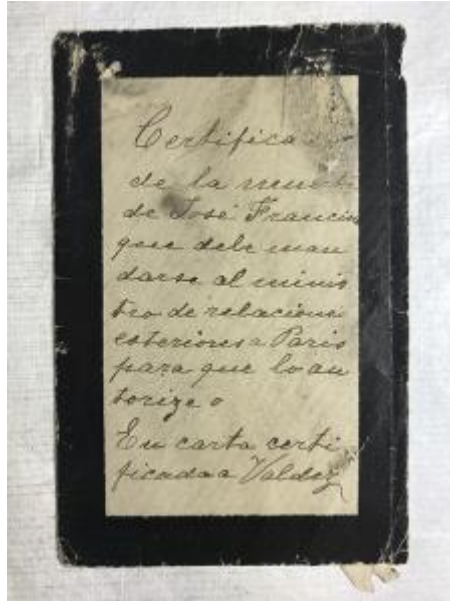 Certifica
de la muerte
de José Francisco
que debe man
darse al minis
tro de relaciones
esteriores a Paris
para que lo au
torize o
En carta certi
ficada a Valdez